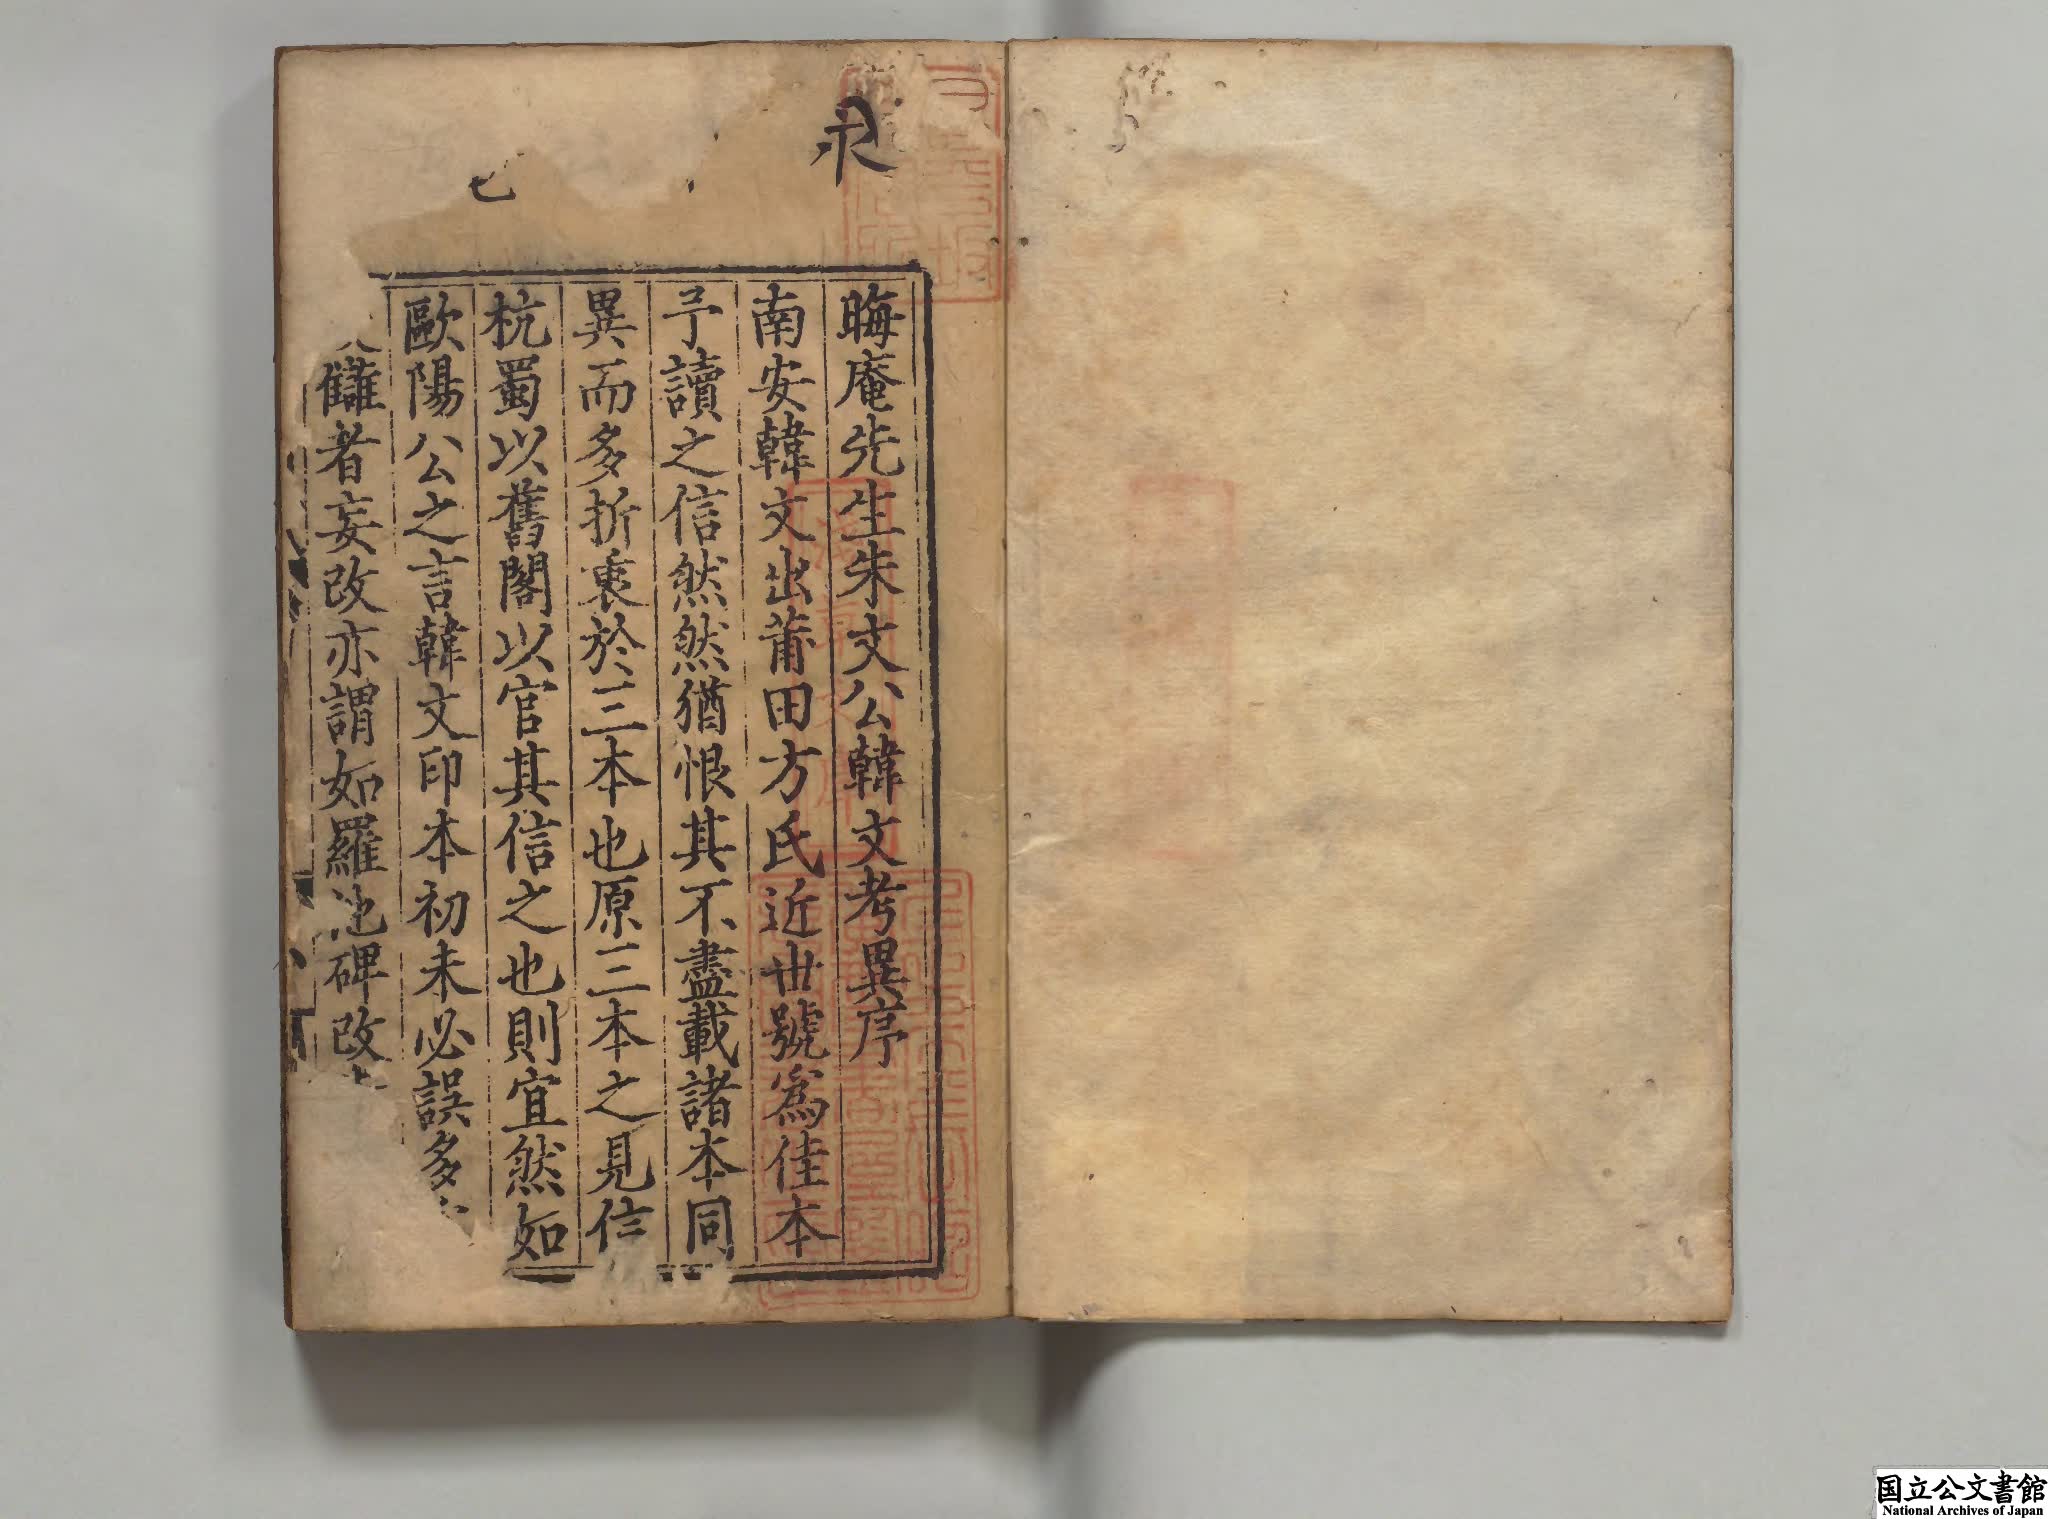 晦庵先生朱文公韓文考異序
南安韓文出莆田方氏近世號爲佳本
予讀之信然然猶恨其不盡載諸本同
異而多折衷於三本也原三本之見信
杭蜀以舊閣以官其信之也則宜然如
歐陽公之言韓文印本初未必誤多
讎者妄改亦謂如羅池碑改
国立公文書館
National Archives of Japan